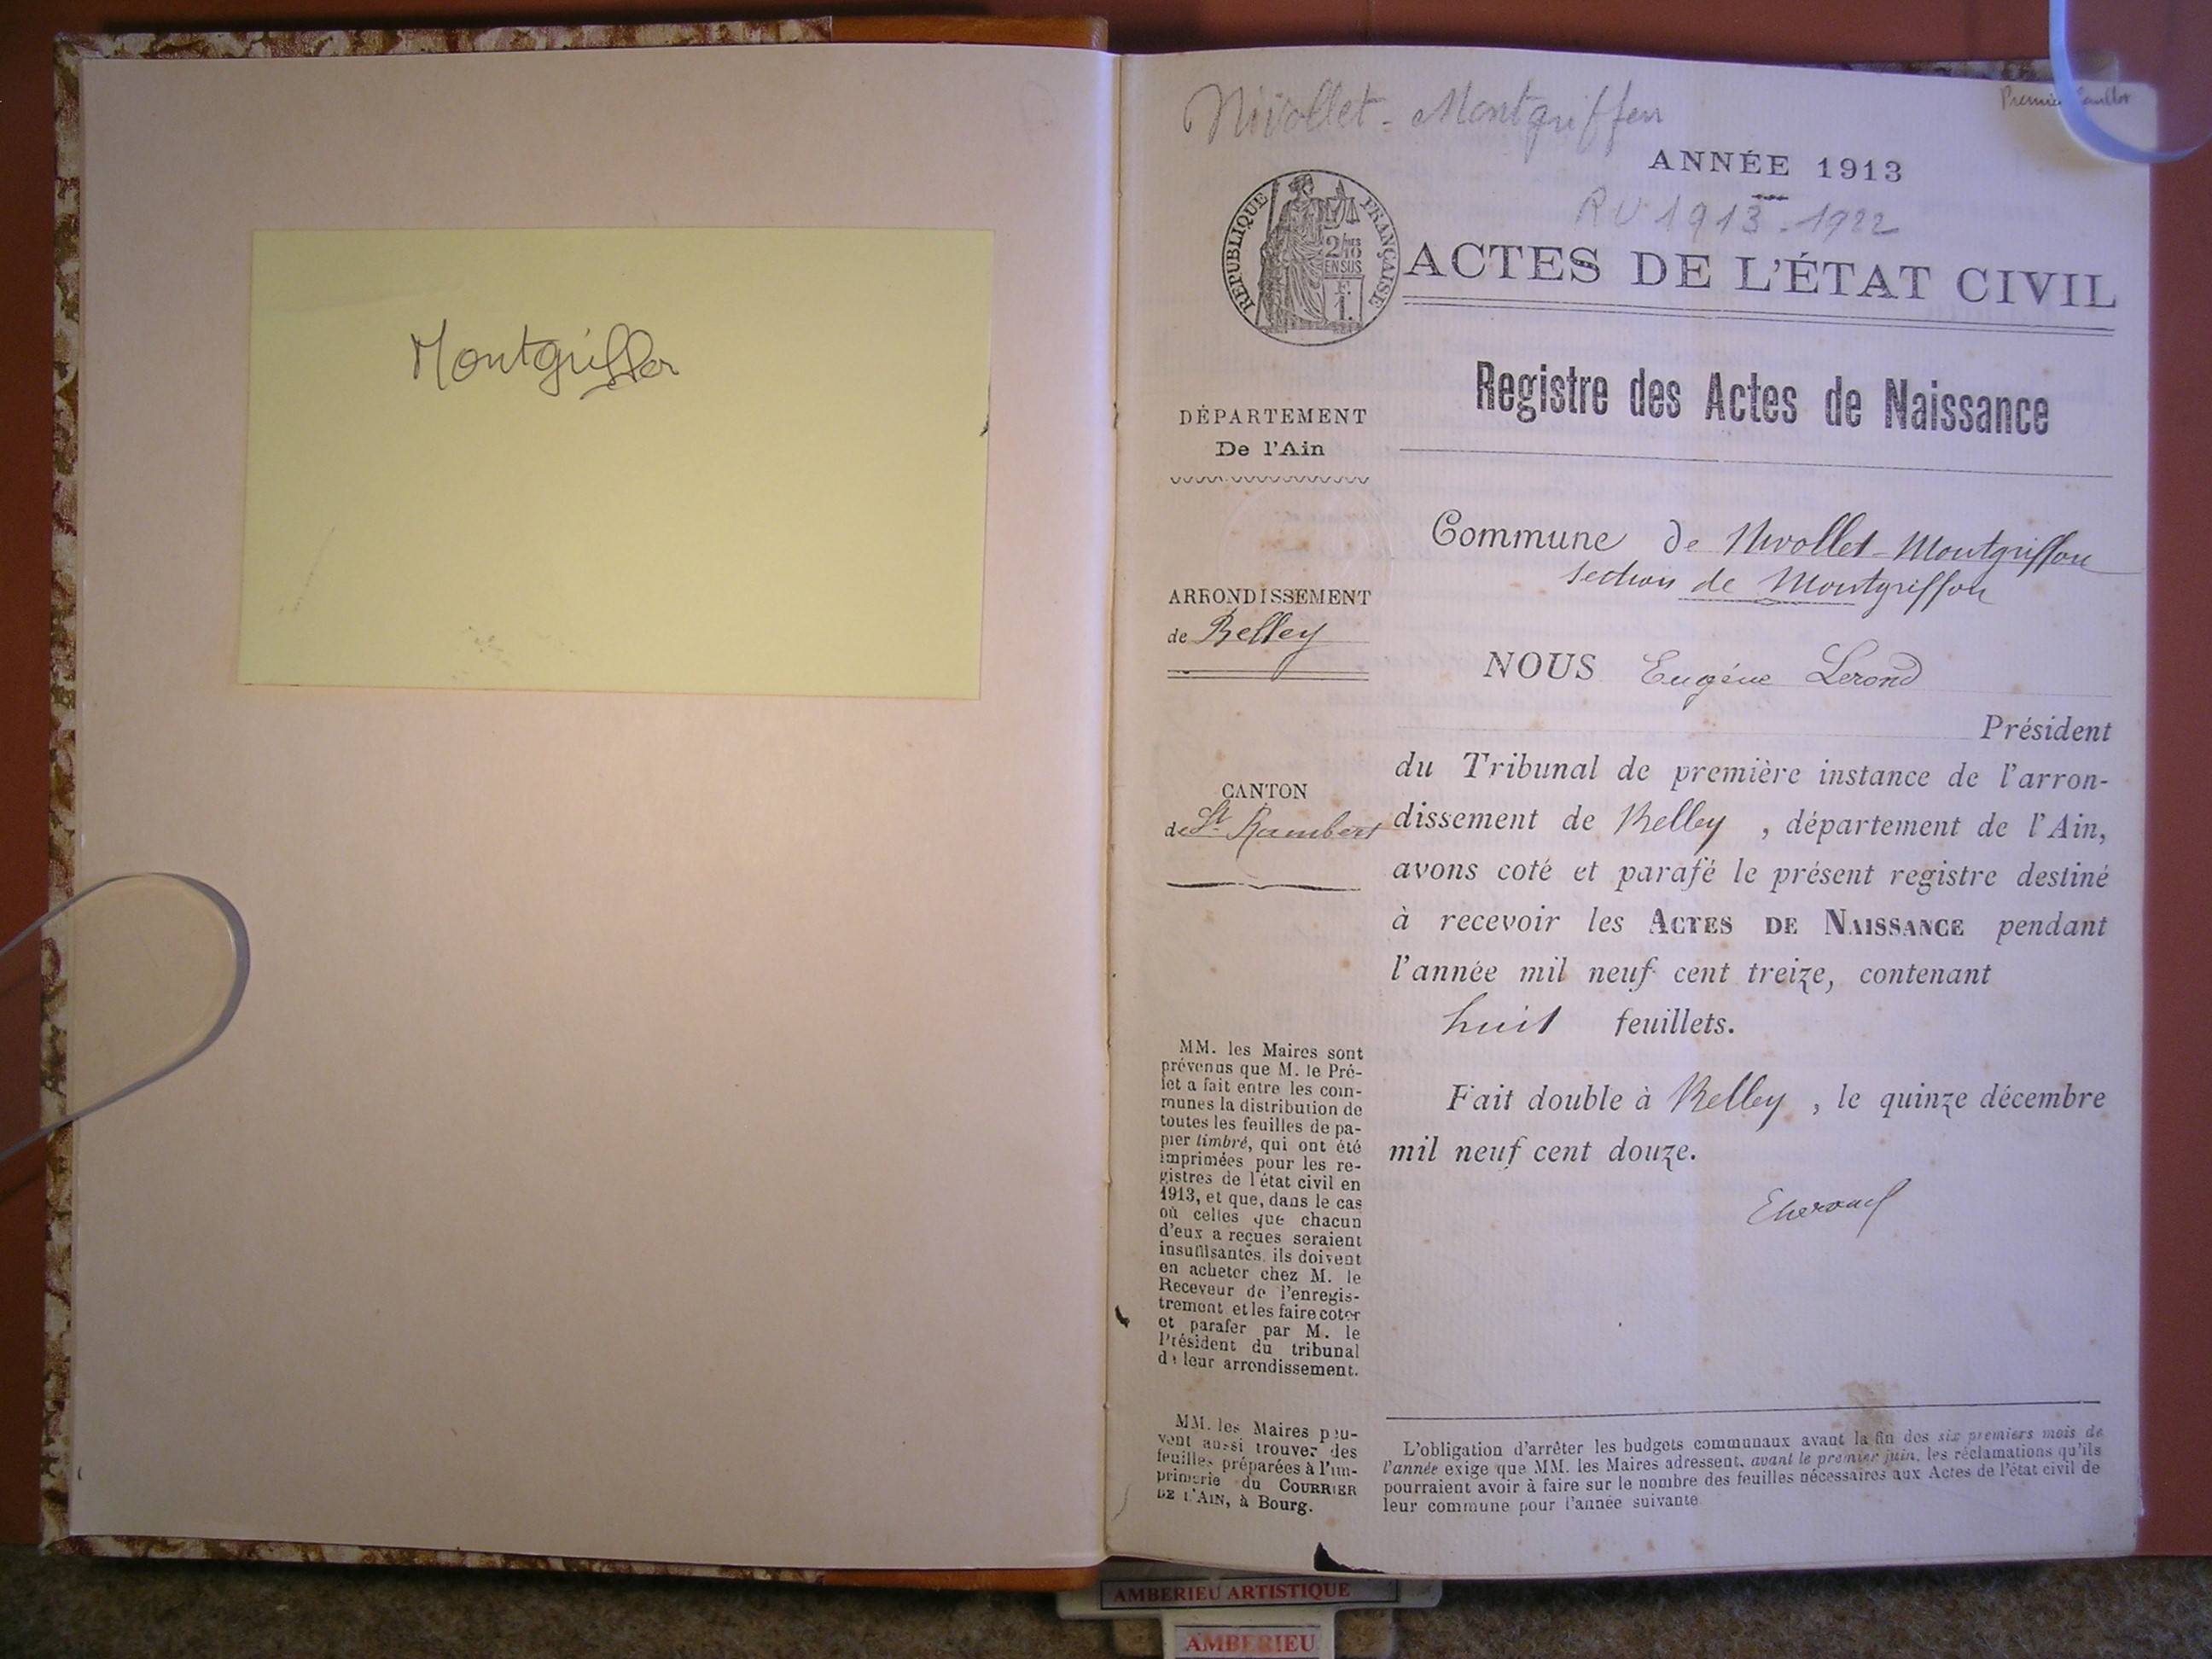 Montgriffon
Nivollet - Montgriffon
Premier feuillet
ANNÉE 1913
RV 1913-1922
RÉPUBLIQUE FRANÇAISE
2/10es
EN SUS
F.
1.
ACTES DE L'ÉTAT CIVIL
Registre des Actes de Naissance
DÉPARTEMENT
De l'Ain
ARRONDISSEMENT
de Belley
CANTON
de St Rambert
MM. les Maires sont
prévenus que M. le Pré-
fet a fait entre les com-
munes la distribution de
toutes les feuilles de pa-
pier timbré, qui ont été
imprimées pour les re-
gistres de l'état civil en
1913, et que, dans le cas
où celles que chacun
d'eux a reçues seraient
insuffisantes, ils doivent
en acheter chez M. le
Receveur de l'enregis-
trement et les faire coter
et parafer par M. le
Président du tribunal
de leur arrondissement.
MM. les Maires peu-
vent aussi trouver des
feuilles préparées à l'im-
primerie du COURRIER
DE L'AIN, à Bourg.
Commune de Nivollet-Montgriffon
section de Montgriffon
NOUS Eugène Lerond
Président
du Tribunal de première instance de l'arron-
dissement de Belley, département de l'Ain,
avons coté et parafé le présent registre destiné
à recevoir les ACTES DE NAISSANCE pendant
l'année mil neuf cent treize, contenant
huit feuillets.
Fait double à Belley, le quinze décembre
mil neuf cent douze.
L'obligation d'arrêter les budgets communaux avant la fin des six premiers mois de
l'année exige que MM. les Maires adressent, avant le premier juin, les réclamations qu'ils
pourraient avoir à faire sur le nombre des feuilles nécessaires aux Actes de l'état civil de
leur commune pour l'année suivante
AMBERIEU ARTISTIQUE
AMBERIEU